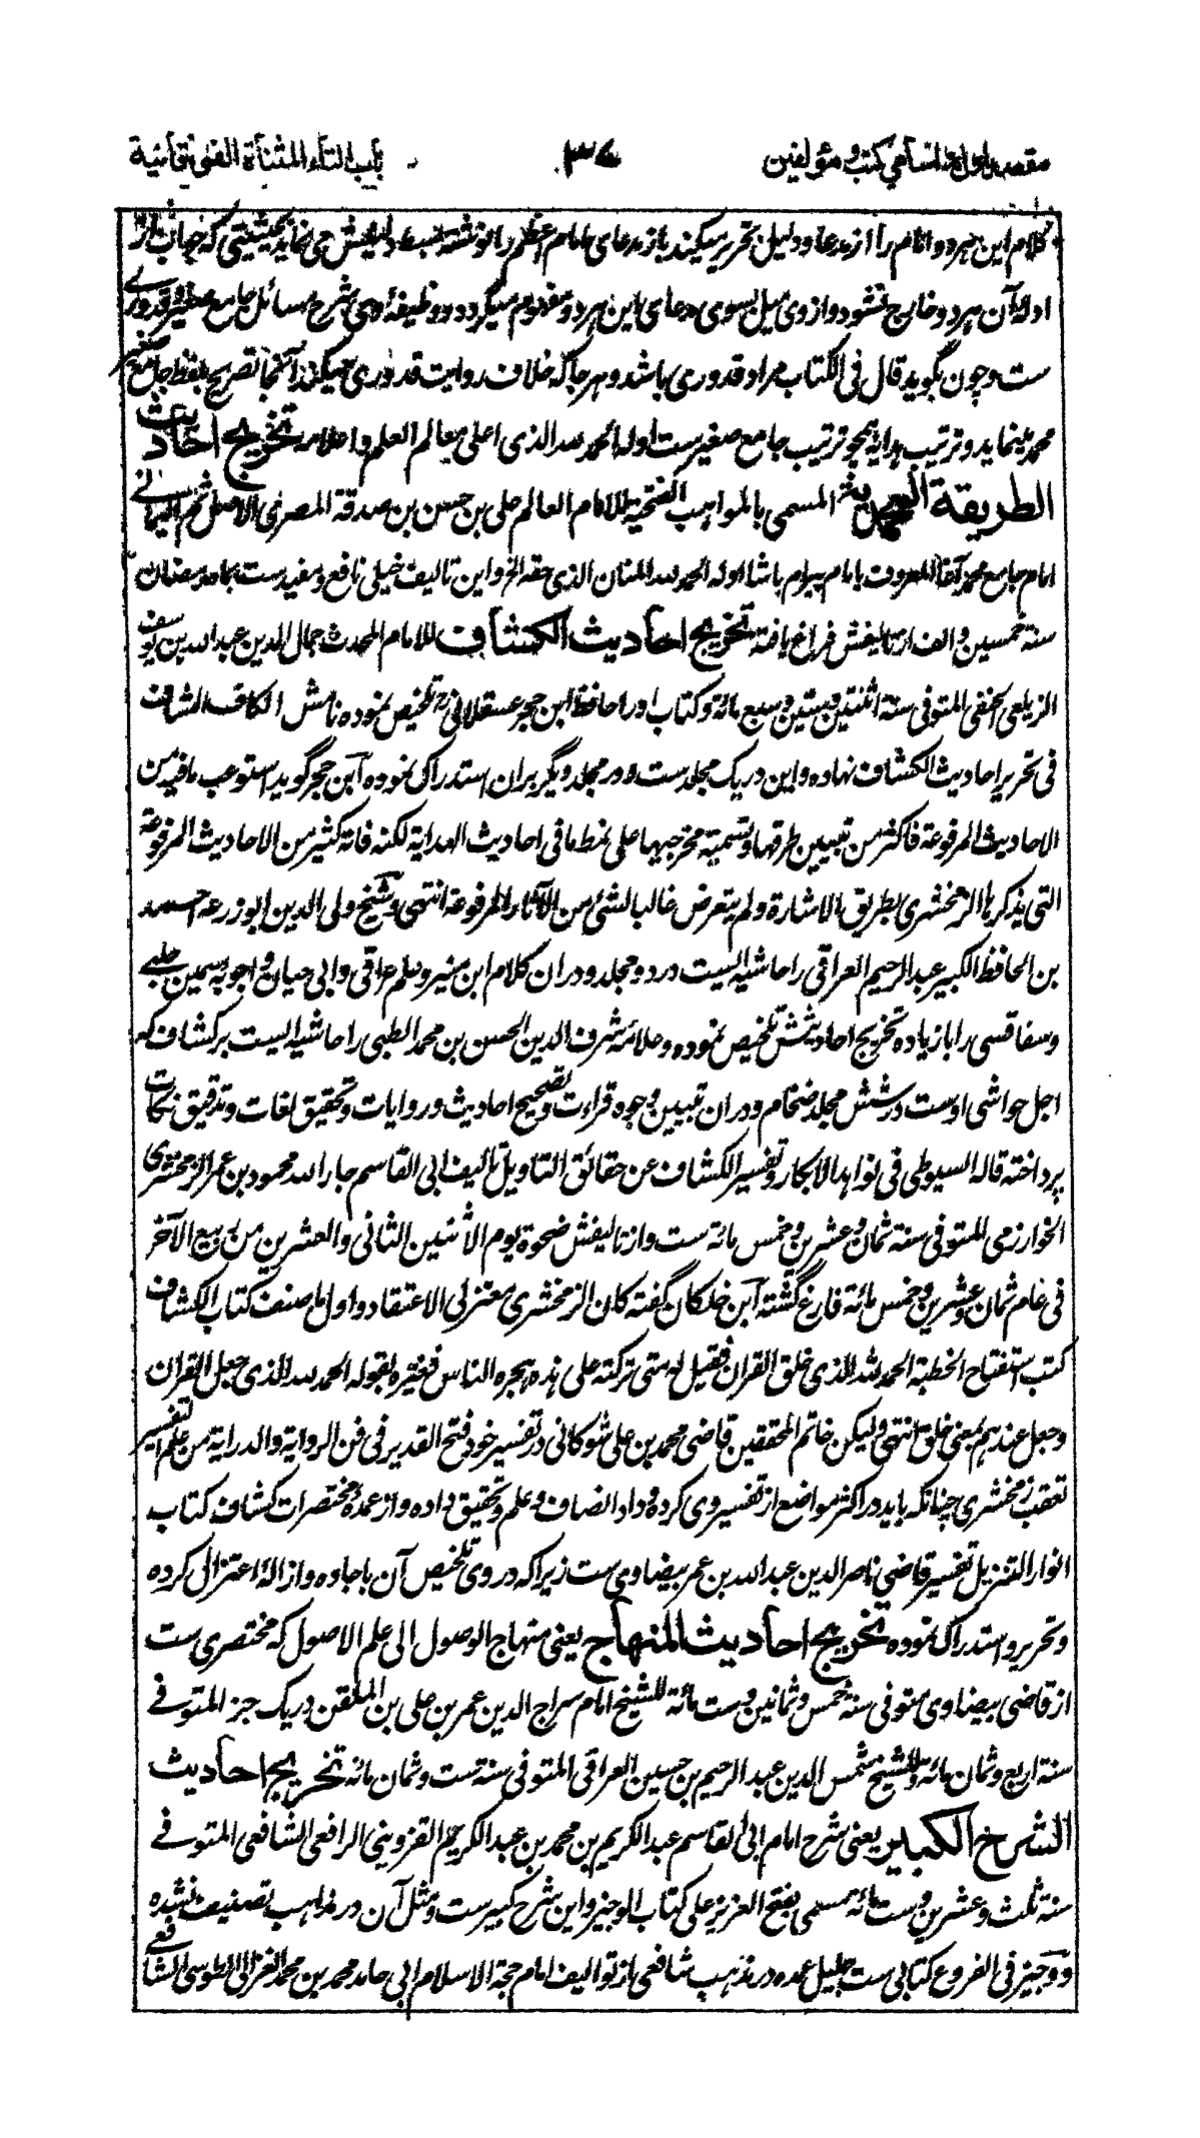 مقصد اول در اسامی کتب و مؤلفین ۳۷ باب التاء المثناة الفوقانیة
کلام این هر دو امام را از مدعا و دلیل تحریر میکند باز مدعای امام اعظم را نوشته بسط دلیلش می نماید بحیثیتی که جواب از
ادلۀ آن هر دو خارج نشود و از وی میل بسوی مدعای این هر دو مفهوم میگردد و وظیفۀ وی شرح مسائل جامع صغیر و قدوری
ست و چون بگوید قال فی الکتاب مراد قدوری باشد و هر جا که خلاف روایت قدوری میکند آنجا تصریح بلفظ جامع صغیر
محمد مینماید و ترتیب هدایه همچو ترتیب جامع صغیر ست اوله الحمد لله الذی اعلی معالم العلم و اعلامه تخریج احادیث
الطریقة المحمدیة المسمی بالمواهب الفتحیة للامام العالم علی بن حسن بن صدقة المصری الاصل ثم الیمانی
امام جامع محمد آغا المعروف بامام پیرام پاشا اوله الحمد لله المنان الذی حقه الخ و این تالیف خیلی نافع و مفید ست بماه رمضان
سنة خمسین و الف از تالیفش فراغ یافته تخریج احادیث الکشاف للامام المحدث جمال الدین عبدالله بن یوسف
الزیلعی الحنفی المتوفی سنة اثنتین و ستین و سبع مائة و کتاب او را حافظ ابن حجر عسقلانی رح تلخیص نموده نامش الکاف الشاف
فی تحریر احادیث الکشاف نهاده و این در یک مجلد ست و در مجلد دیگر بران استدراک نموده ابن حجر گوید استوعب ما فیه من
الاحادیث المرفوعة فاکثر من تبیین طرقها و تسمیة مخرجیها علی نمط ما فی احادیث الهدایة لکنه فاته کثیر من الاحادیث المرفوعة
التی یذکرها الزمخشری بطریق الاشارة و لم یتعرض غالبا لشئ من الآثار المرفوعة انتهی و شیخ ولی الدین ابو زرعه احمد
بن الحافظ الکبیر عبدالرحیم العراقی را حاشیه ایست در دو مجلد و دران کلام ابن منیر و علم عراقی و ابی حیان و اجوبه سمین حلبی
و سفاقسی را با زیاده تخریج احادیثش تلخیص نموده و علامه شرف الدین الحسن بن محمد الطیبی را حاشیه ایست بر کشاف که
اجل حواشی اوست در شش مجلد ضخام و دران تبیین وجوه قراءت و تصحیح احادیث و روایات و تحقیق لغات و تدقیق نکات
پرداخته قاله السیوطی فی نواهد الابکار و تفسیر الکشاف عن حقائق التاویل تالیف ابی القاسم جار الله محمود بن عمر الزمخشری
الخوارزمی المتوفی سنة ثمان و عشرین و خمس مائة ست و از تالیفش ضحوة یوم الاثنین الثانی و العشرین من ربیع الآخر
فی عام ثمان و عشرین و خمس مائة فارغ گشته ابن خلکان گفته کان الزمخشری معتزلی الاعتقاد و اول ما صنف کتاب الکشاف
کتب استفتاح الخطبة الحمد لله الذی خلق القران فقیل له متی ترکته علی هذه هجره الناس فغیره بقوله الحمد لله الذی جعل القران
و جعل عندهم بمعنی خلق انتهی و لیکن خاتم المحققین قاضی محمد بن علی شوکانی در تفسیر خود فتح القدیر فی فن الروایة والدرایة من علم التفسیر
تعقب زمخشری چنانکه باید در اکثر مواضع از تفسیر وی کرده و داد انصاف و علم و تحقیق داده و از عمدۀ مختصرات کشاف کتاب
انوار التنزیل تفسیر قاضی ناصر الدین عبدالله بن عمر بیضاوی ست زیرا که در وی تلخیص آن با جاده و ازالۀ اعتزال کرده
و تحریر و استدراک نموده تخریج احادیث المنهاج یعنی منهاج الوصول الی علم الاصول که مختصری ست
از قاضی بیضاوی متوفی سنة خمس و ثمانین و ست مائة للشیخ امام سراج الدین عمر بن علی بن الملقن در یک جز المتوفی
سنة اربع و ثمان مائة و للشیخ شمس الدین عبد الرحیم بن حسین العراقی المتوفی سنة ست و ثمان مائة تخریج احادیث
الشرح الکبیر یعنی شرح امام ابی القاسم عبدالکریم بن محمد بن عبدالکریم القزوینی الرافعی الشافعی المتوفی
سنة ثلث و عشرین و ست مائة مسمی بفتح العزیز علی کتاب الوجیز و این شرح کبیر ست و مثل آن در مذاهب تصنیف نشده
و وجیز فی الفروع کتابی ست جلیل عمده در مذهب شافعی از توالیف امام حجة الاسلام ابی حامد محمد بن محمد الغزالی الطوسی الشافعی